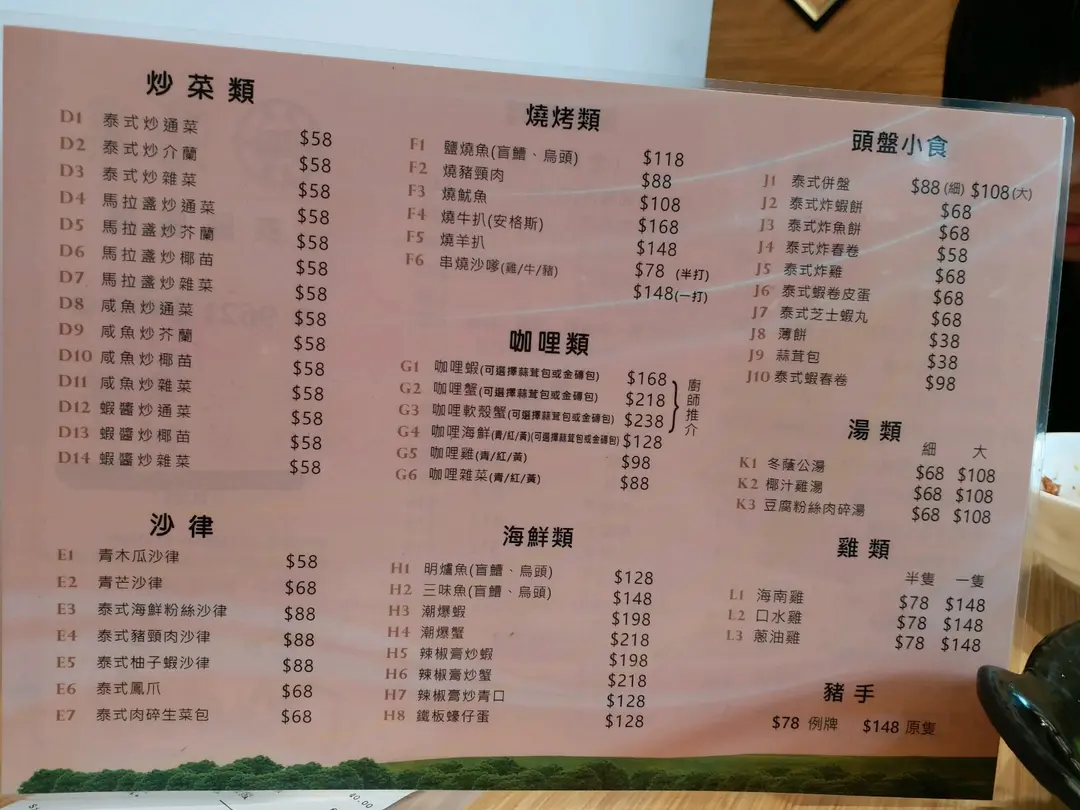 炒菜類
D1 泰式炒通菜 $58
D2 泰式炒介蘭 $58
D3 泰式炒雜菜 $58
D4 馬拉盞炒通菜 $58
D5 馬拉盞炒芥蘭 $58
D6 馬拉盞炒椰苗 $58
D7 馬拉盞炒雜菜 $58
D8 咸魚炒通菜 $58
D9 咸魚炒芥蘭 $58
D10 咸魚炒椰苗 $58
D11 咸魚炒雜菜 $58
D12 蝦醬炒通菜 $58
D13 蝦醬炒椰苗 $58
D14 蝦醬炒雜菜 $58
沙律
E1 青木瓜沙律 $58
E2 青芒沙律 $68
E3 泰式海鮮粉絲沙律 $88
E4 泰式豬頸肉沙律 $88
E5 泰式柚子蝦沙律 $88
E6 泰式鳳爪 $68
E7 泰式肉碎生菜包 $68
燒烤類
F1 鹽燒魚(盲鰽、烏頭) $118
F2 燒豬頸肉 $88
F3 燒魷魚 $108
F4 燒牛扒(安格斯) $168
F5 燒羊扒 $148
F6 串燒沙嗲(雞/牛/豬) $78 (半打)
$148(一打)
咖哩類
G1 咖哩蝦(可選擇蒜茸包或金磚包) $168
G2 咖哩蟹(可選擇蒜茸包或金磚包) $218
G3 咖哩軟殼蟹(可選擇蒜茸包或金磚包) $238
G4 咖哩海鮮(青/紅/黃)(可選擇蒜茸包或金磚包) $128
G5 咖哩雞(青/紅/黃) $98
G6 咖哩雜菜(青/紅/黃) $88
廚師推介
海鮮類
H1 明爐魚(盲鰽、烏頭) $128
H2 三味魚(盲鰽、烏頭) $148
H3 潮爆蝦 $198
H4 潮爆蟹 $218
H5 辣椒膏炒蝦 $198
H6 辣椒膏炒蟹 $218
H7 辣椒膏炒青口 $128
H8 鐵板蠔仔蛋 $128
頭盤小食
J1 泰式併盤 $88(細) $108(大)
J2 泰式炸蝦餅 $68
J3 泰式炸魚餅 $68
J4 泰式炸春卷 $58
J5 泰式炸雞 $68
J6 泰式蝦卷皮蛋 $68
J7 泰式芝士蝦丸 $68
J8 薄餅 $38
J9 蒜茸包 $38
J10 泰式蝦春卷 $98
湯類
細 大
K1 冬蔭公湯 $68 $108
K2 椰汁雞湯 $68 $108
K3 豆腐粉絲肉碎湯 $68 $108
雞類
半隻 一隻
L1 海南雞 $78 $148
L2 口水雞 $78 $148
L3 蔥油雞 $78 $148
豬手
$78 例牌 $148 原隻